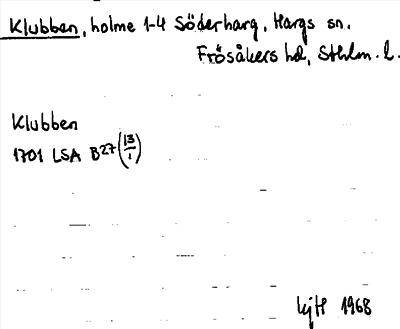 Klubben, holme 1-4 Söderharg, Hargs sn.
Frösåkers hd, Sthlm. l.
Klubben
1701 LSA B27 (13/1)
1968